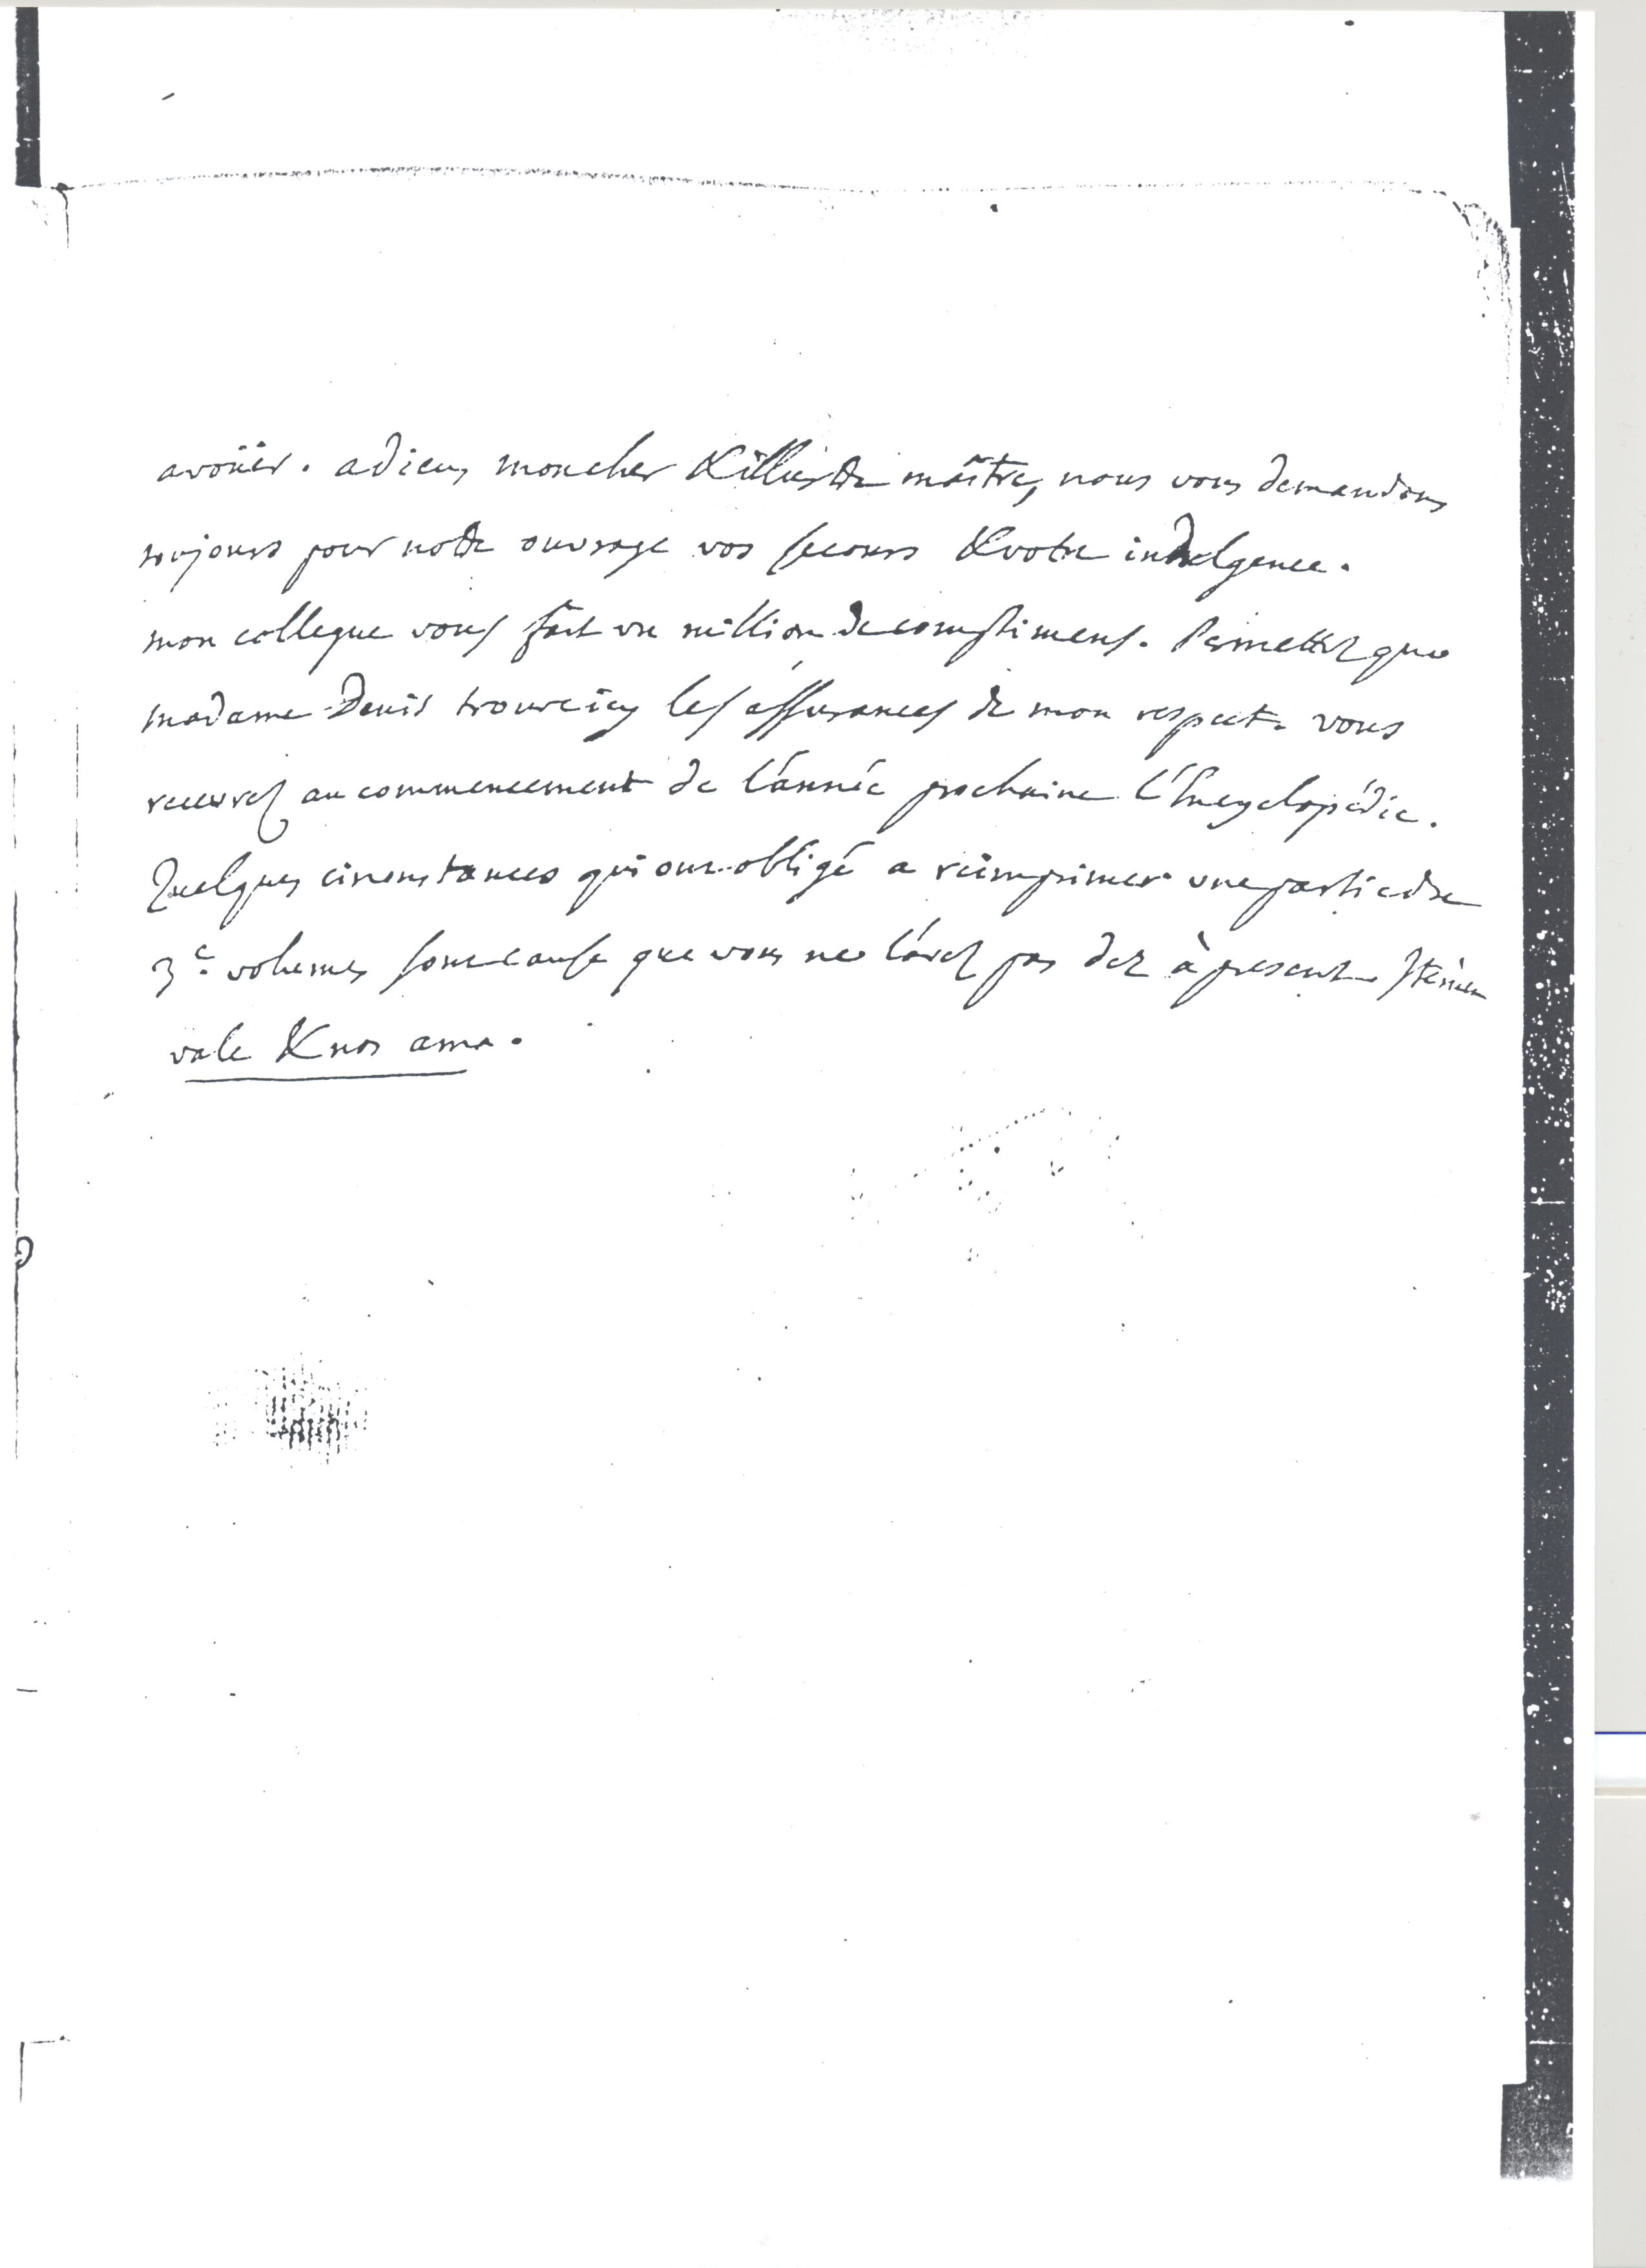 avoüer. adieu, mon cher & illustre maître, nous vous demandons
toujours pour notre ouvrage vos secours & votre indulgence.
mon collegue vous fait un million de complimens. Permettez que
madame Denis trouve icy les assurances de mon respect. vous
recevrez au commencement de l'année prochaine l'Encyclopédie.
Quelques circonstances qui ont obligé a réimprimer une partie du
3e. volumes sont cause que vous ne l'avez pas dez à présent. Iterum
vale & nos ama.